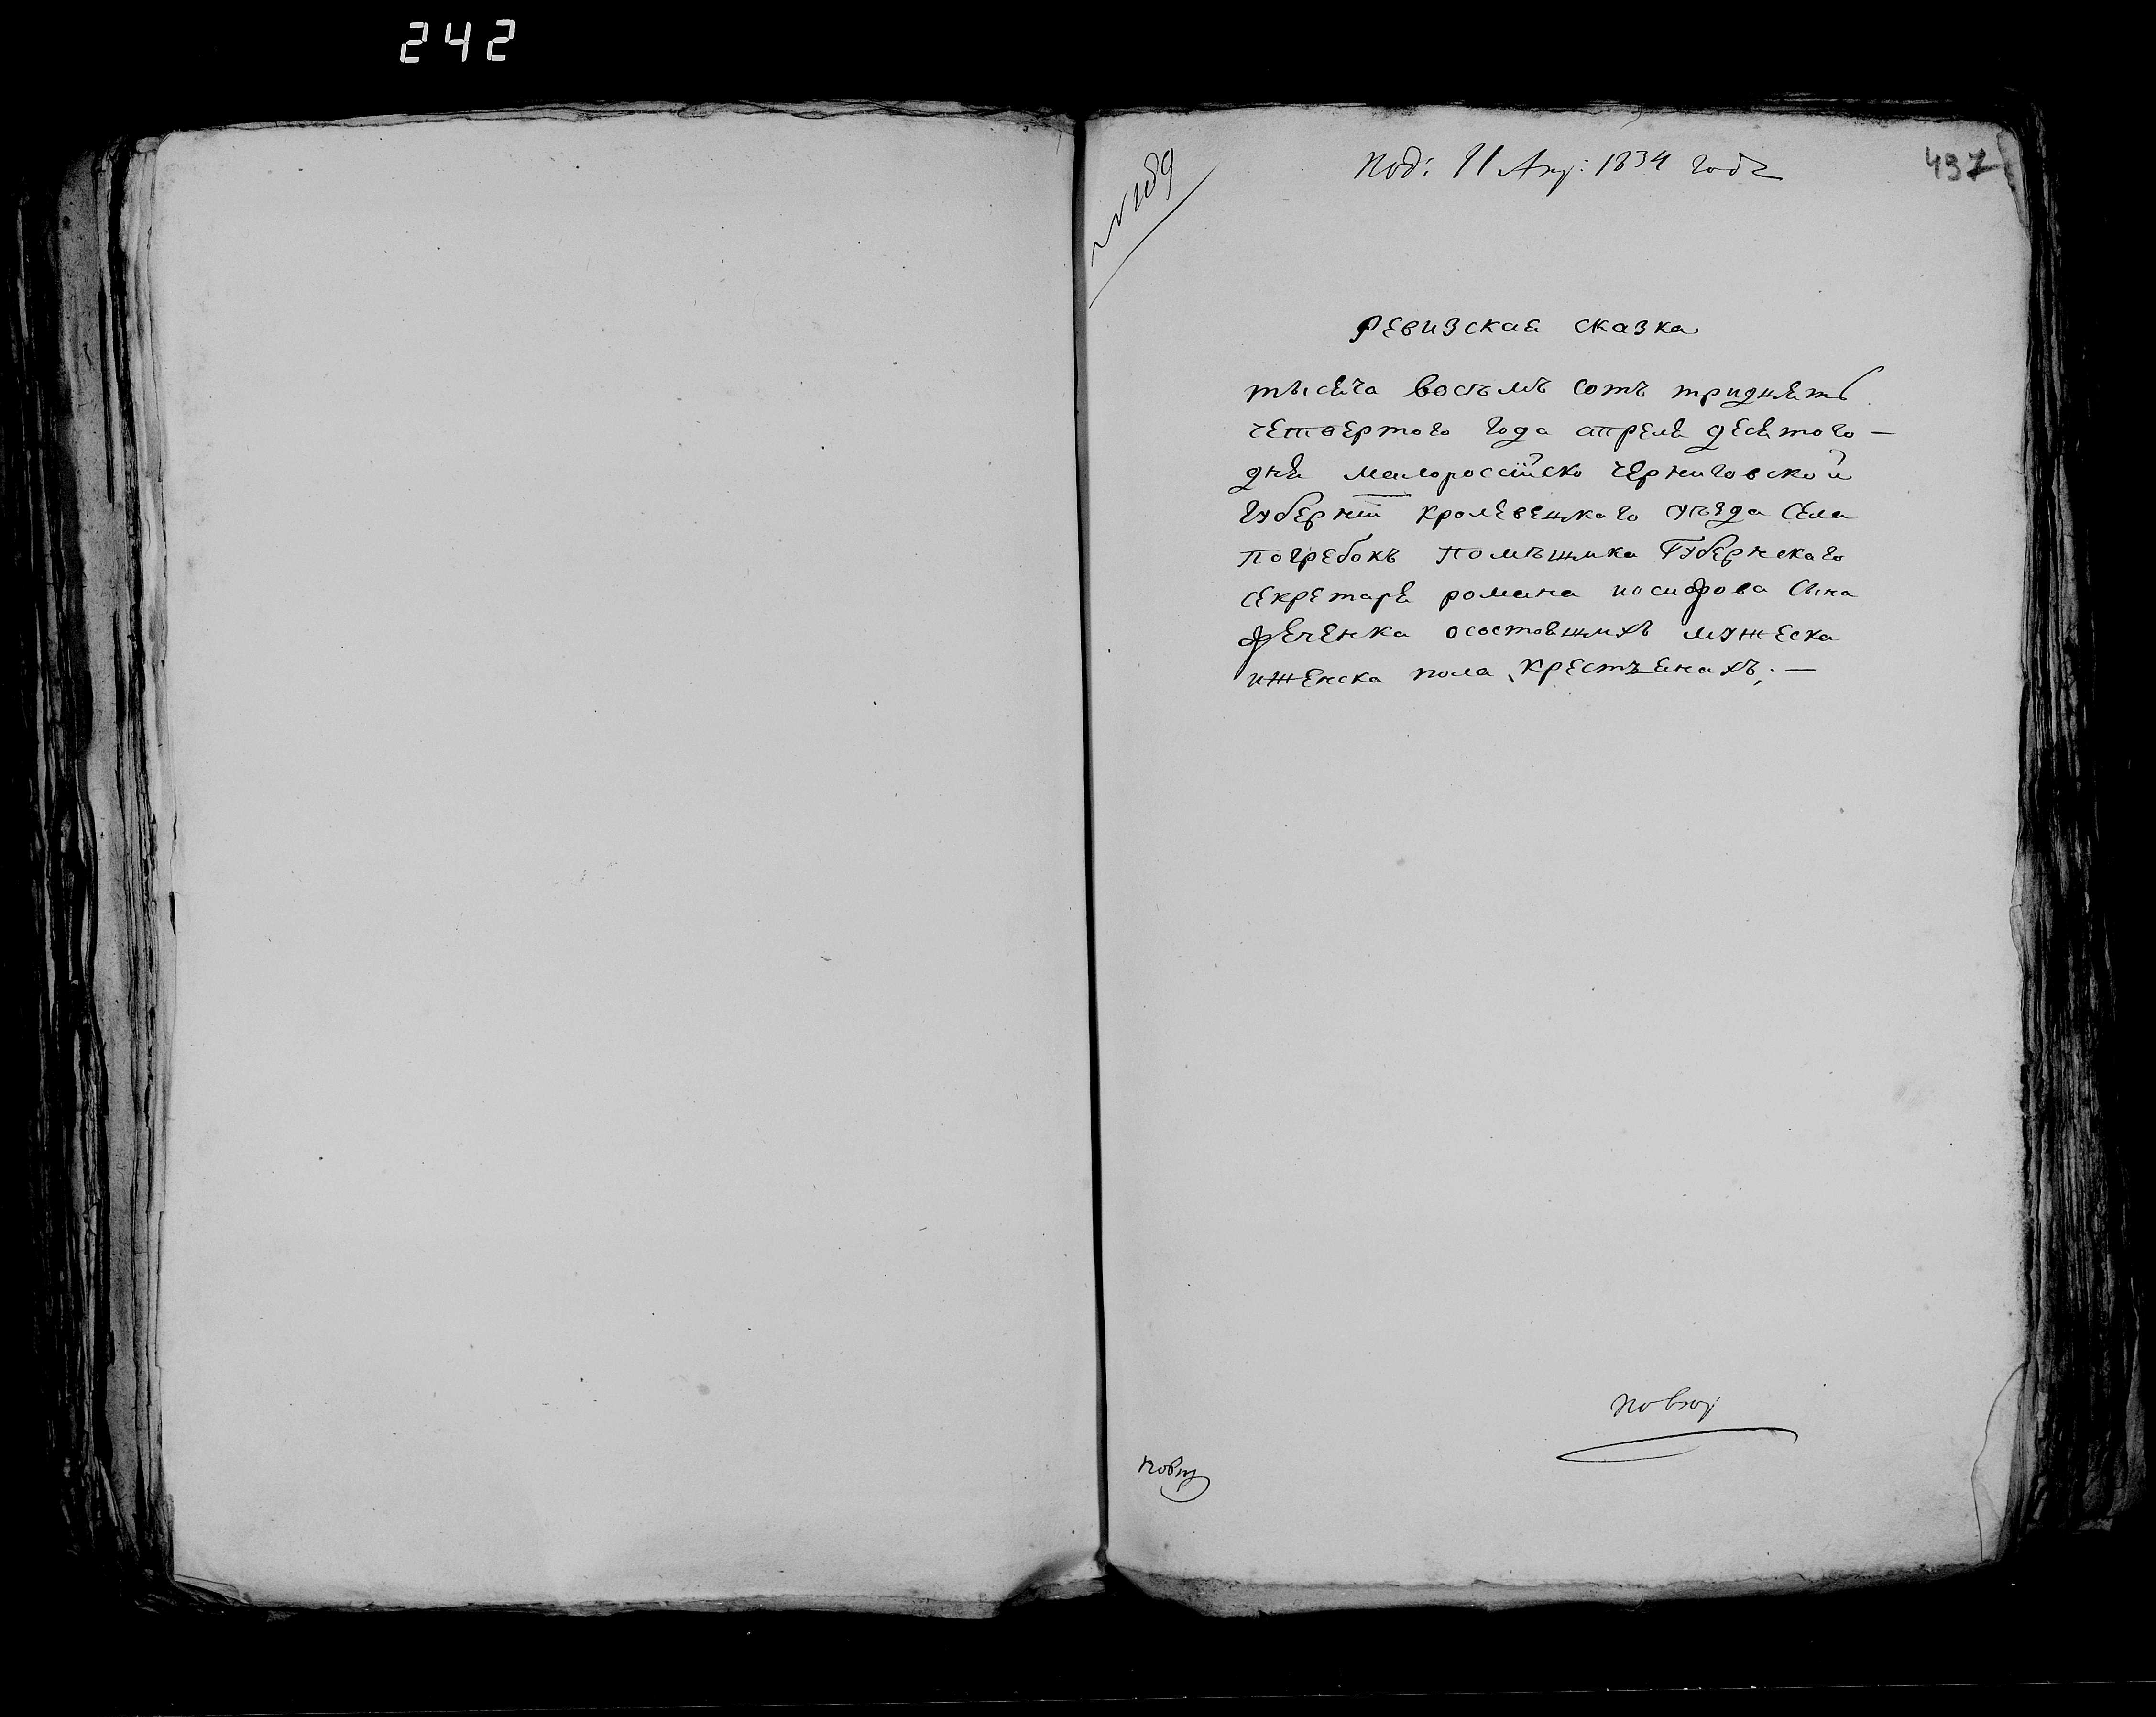 242
№ 189
Под: 11 Апр: 1834 года
497
Ревизская сказка
тысяча восъмъ сотъ тридцять
четвертого года апреля десятого —
дня малороссійско черниговской
губерніи кролевецкаго уѣзда села
погребокъ помѣщика Губернскаго
секретаря романа иосифова сына
фѣченка осостоящихъ мужеска
иженска пола, крестъянахъ. —